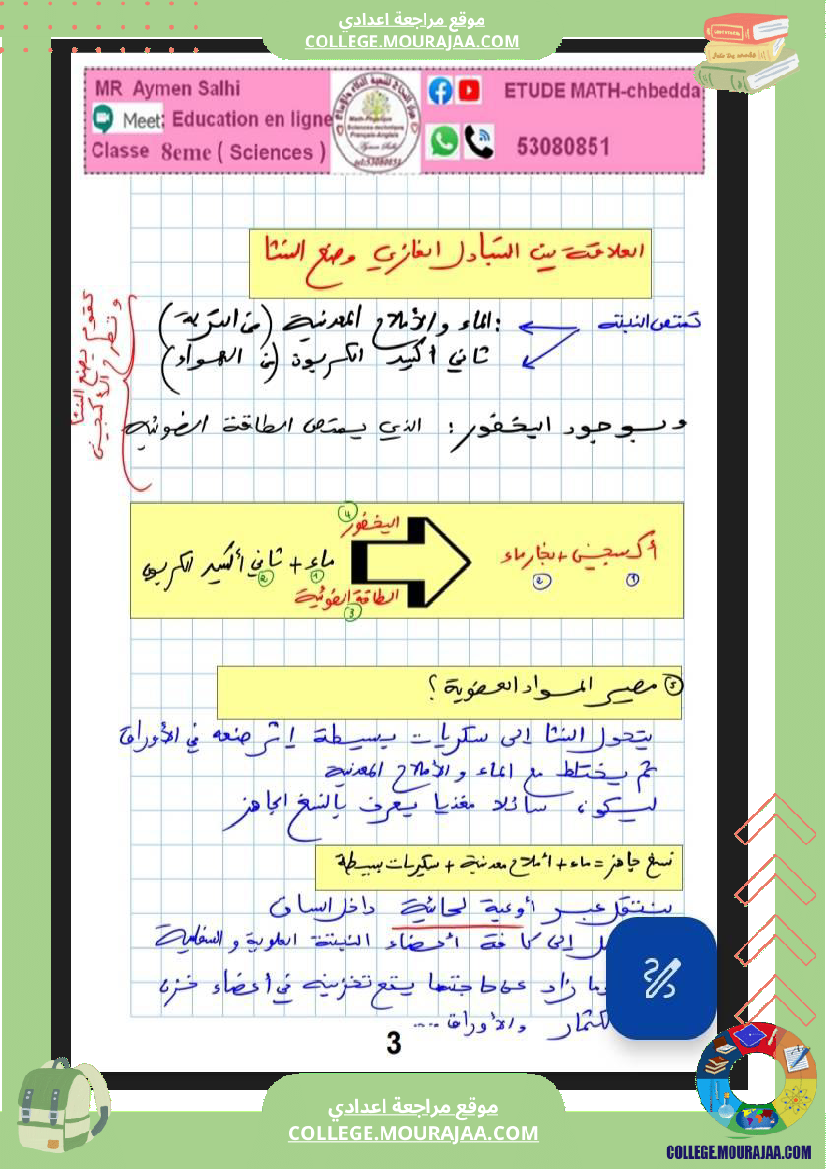 موقع مراجعة اعدادي
COLLEGE.MOURAJAA.COM
MR Aymen Salhi
Meet: Education en ligne
Classe 8eme ( Sciences )
ETUDE MATH-chbedda
53080851
العلاقة بين التبادل الغازي وصنع النشا
تمتص النبتة
: الماء والأملاح المعدنية (من التربة)
ثاني أكسيد الكربون (من الهواء)
وبوجود اليخضور : الذي يمتص الطاقة الضوئية
تقوم بصنع النشا
وتطرح الأكسجين
ماء + ثاني أكسيد الكربون
1 2
اليخضور 4
الطاقة الضوئية
3
أكسجين + بخار ماء
1 2
5 مصير المواد العضوية ؟
يتحول النشا إلى سكريات بسيطة إثر صنعه في الأوراق
ثم يختلط مع الماء والأملاح المعدنية
ليكون سائلا مغذيا يعرف بالنسغ الجاهز
نسغ جاهز = ماء + أملاح معدنية + سكريات بسيطة
ينتقل عبر أوعية لحائية داخل الساق
إلى كافة أعضاء النبتة العلوية والسفلية
وما زاد عن حاجتها يقع تخزينه في أعضاء خزن
كالثمار والأوراق ....
3
موقع مراجعة اعدادي
COLLEGE.MOURAJAA.COM
COLLEGE.MOURAJAA.COM